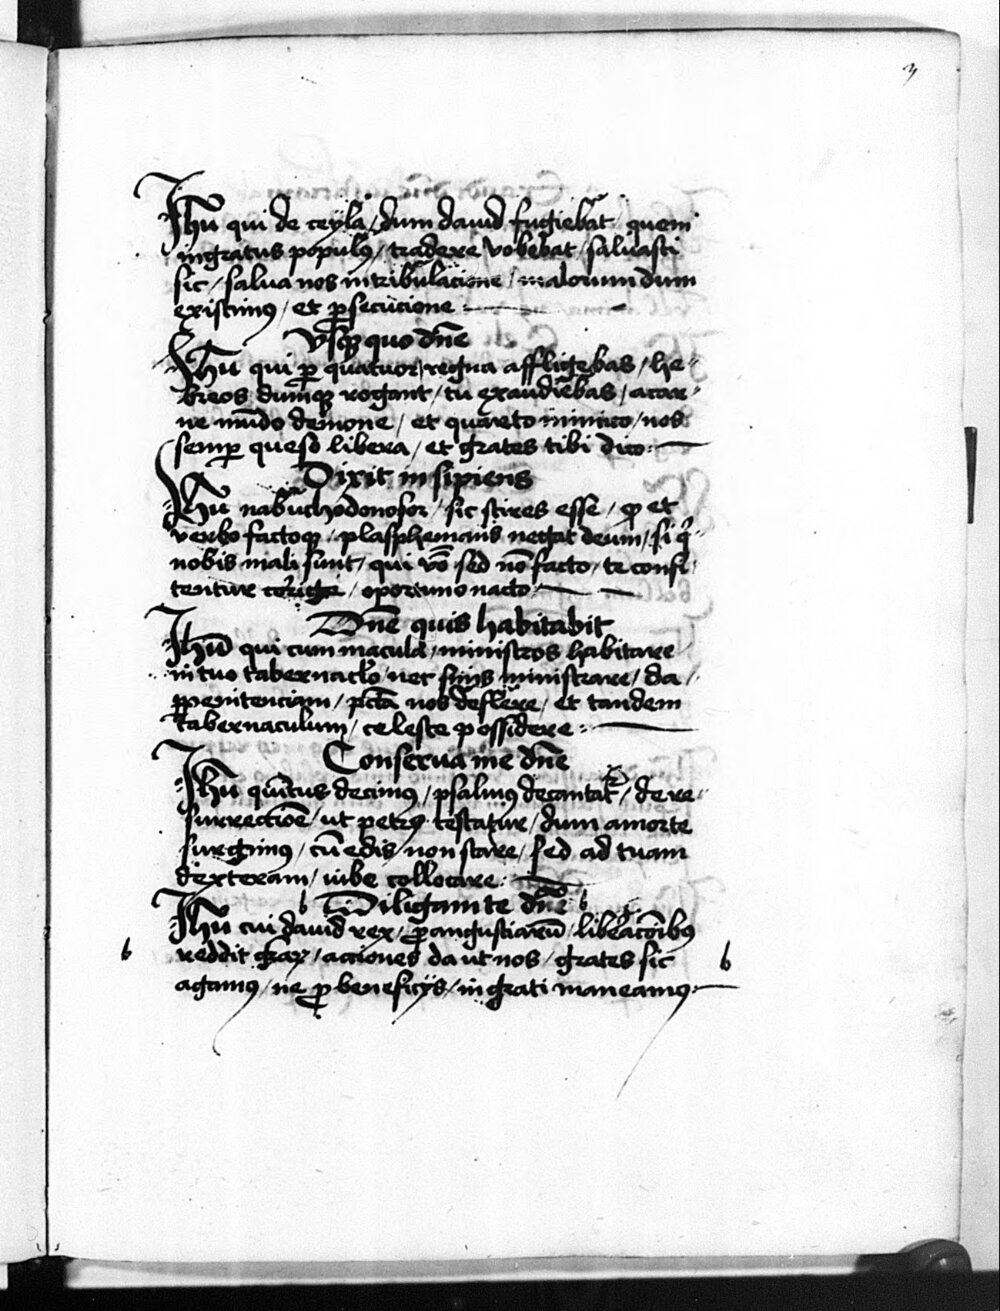 3
Jhu qui de ceyla / dum david fugiebat / quem
ingratus populus / tradere volebat / salvasti
sic / salva nos in tribulacione / malorum dum
existimus / et persecucione
Vsque quo dne
Jhu qui per quatuor / regna affligebas / he-
breos dumque rogant / tu exaudiebas / a car-
ne mundo demone / et quarto inimico / nos
semper queso libera / et grates tibi dico
Dixit insipiens
Jhu nabuchodonosor / sic stires esse / et
verbo factoque / plasphemans negat deum / si
nobis mali sunt / qui sed non facto / te confi
tentur corige / oportuno nacto
Dne quis habitabit
Jhu qui cum macula / ministros habitare
in tuo tabernaclo / nec sinis ministrare / da
penitenciam / pcta nos deflere / et tandem
tabernaculum / celeste possidere
Conserua me dne
Jhu quintus decimus / psalmus decantatur / de re-
surrectioe / ut petrus testatur / dum a morte
surgimus / cum edis non stare / sed ad tuam
dexteram / iube collocare
b Diligam te dne b
Jhu cui david rex / pro angustiarum / liberacionibus
b reddit / acciones da ut nos / grates sic b
agamus / ne pro beneficijs / ingrati maneamus